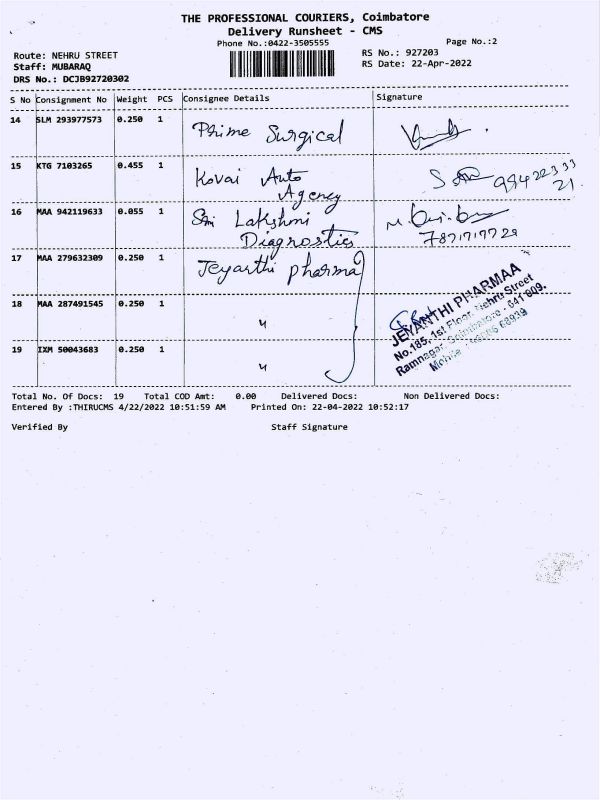 THE PROFESSIONAL COURIERS, Coimbatore
Delivery Runsheet - CMS
Phone No.:0422-3505555
Page No.:2
Route: NEHRU STREET
RS No.: 927203
Staff: MUBARAQ
RS Date: 22-Apr-2022
DRS No.: DCJB92720302
S No Consignment No Weight PCS Consignee Details Signature
14 SLM 293977573 0.250 1 Prime Surgical
15 KTG 7103265 0.455 1 Kovai Auto Agency 99422333 21
16 MAA 942119633 0.055 1 Sri Lakshmi Diagnostics
17 MAA 279632309 0.250 1 Jeyanthi pharma
18 MAA 287491545 0.250 1 "
19 IXM 50043683 0.250 1 "
JEYANTHI PHARMAA
No.185, 1st Floor, Nehru Street
Ramnagar, Coimbatore - 641 009.
Mobile :
Total No. Of Docs: 19 Total COD Amt: 0.00 Delivered Docs: Non Delivered Docs:
Entered By :THIRUCMS 4/22/2022 10:51:59 AM Printed On: 22-04-2022 10:52:17
Verified By Staff Signature